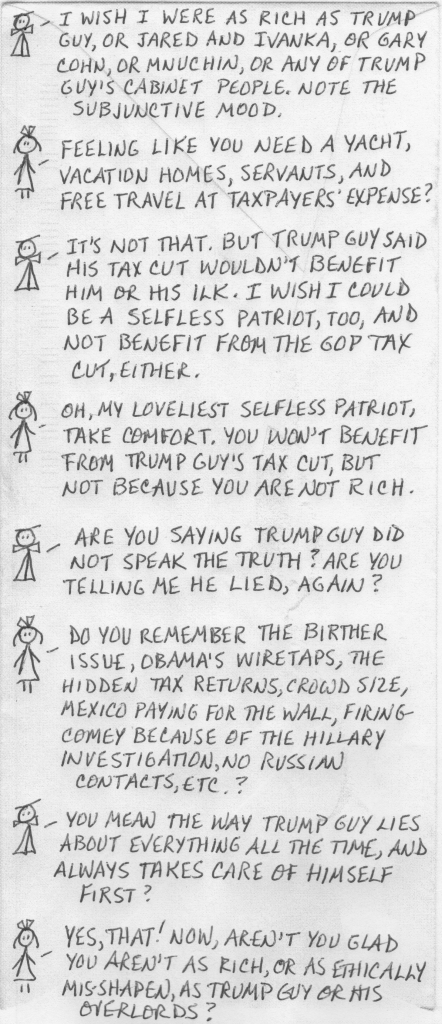 I WISH I WERE AS RICH AS TRUMP
GUY, OR JARED AND IVANKA, OR GARY
COHN, OR MNUCHIN, OR ANY OF TRUMP
GUY'S CABINET PEOPLE. NOTE THE
SUBJUNCTIVE MOOD.
FEELING LIKE YOU NEED A YACHT,
VACATION HOMES, SERVANTS, AND
FREE TRAVEL AT TAXPAYERS' EXPENSE?
IT'S NOT THAT. BUT TRUMP GUY SAID
HIS TAX CUT WOULDN'T BENEFIT
HIM OR HIS ILK. I WISH I COULD
BE A SELFLESS PATRIOT, TOO, AND
NOT BENEFIT FROM THE GOP TAX
CUT, EITHER.
OH, MY LOVELIEST SELFLESS PATRIOT,
TAKE COMFORT. YOU WON'T BENEFIT
FROM TRUMP GUY'S TAX CUT, BUT
NOT BECAUSE YOU ARE NOT RICH.
ARE YOU SAYING TRUMP GUY DID
NOT SPEAK THE TRUTH? ARE YOU
TELLING ME HE LIED, AGAIN?
DO YOU REMEMBER THE BIRTHER
ISSUE, OBAMA'S WIRETAPS, THE
HIDDEN TAX RETURNS, CROWD SIZE,
MEXICO PAYING FOR THE WALL, FIRING
COMEY BECAUSE OF THE HILLARY
INVESTIGATION, NO RUSSIAN
CONTACTS, ETC.?
YOU MEAN THE WAY TRUMP GUY LIES
ABOUT EVERYTHING ALL THE TIME, AND
ALWAYS TAKES CARE OF HIMSELF
FIRST?
YES, THAT! NOW, AREN'T YOU GLAD
YOU AREN'T AS RICH, OR AS ETHICALLY
MIS-SHAPEN, AS TRUMP GUY OR HIS
OVERLORDS?